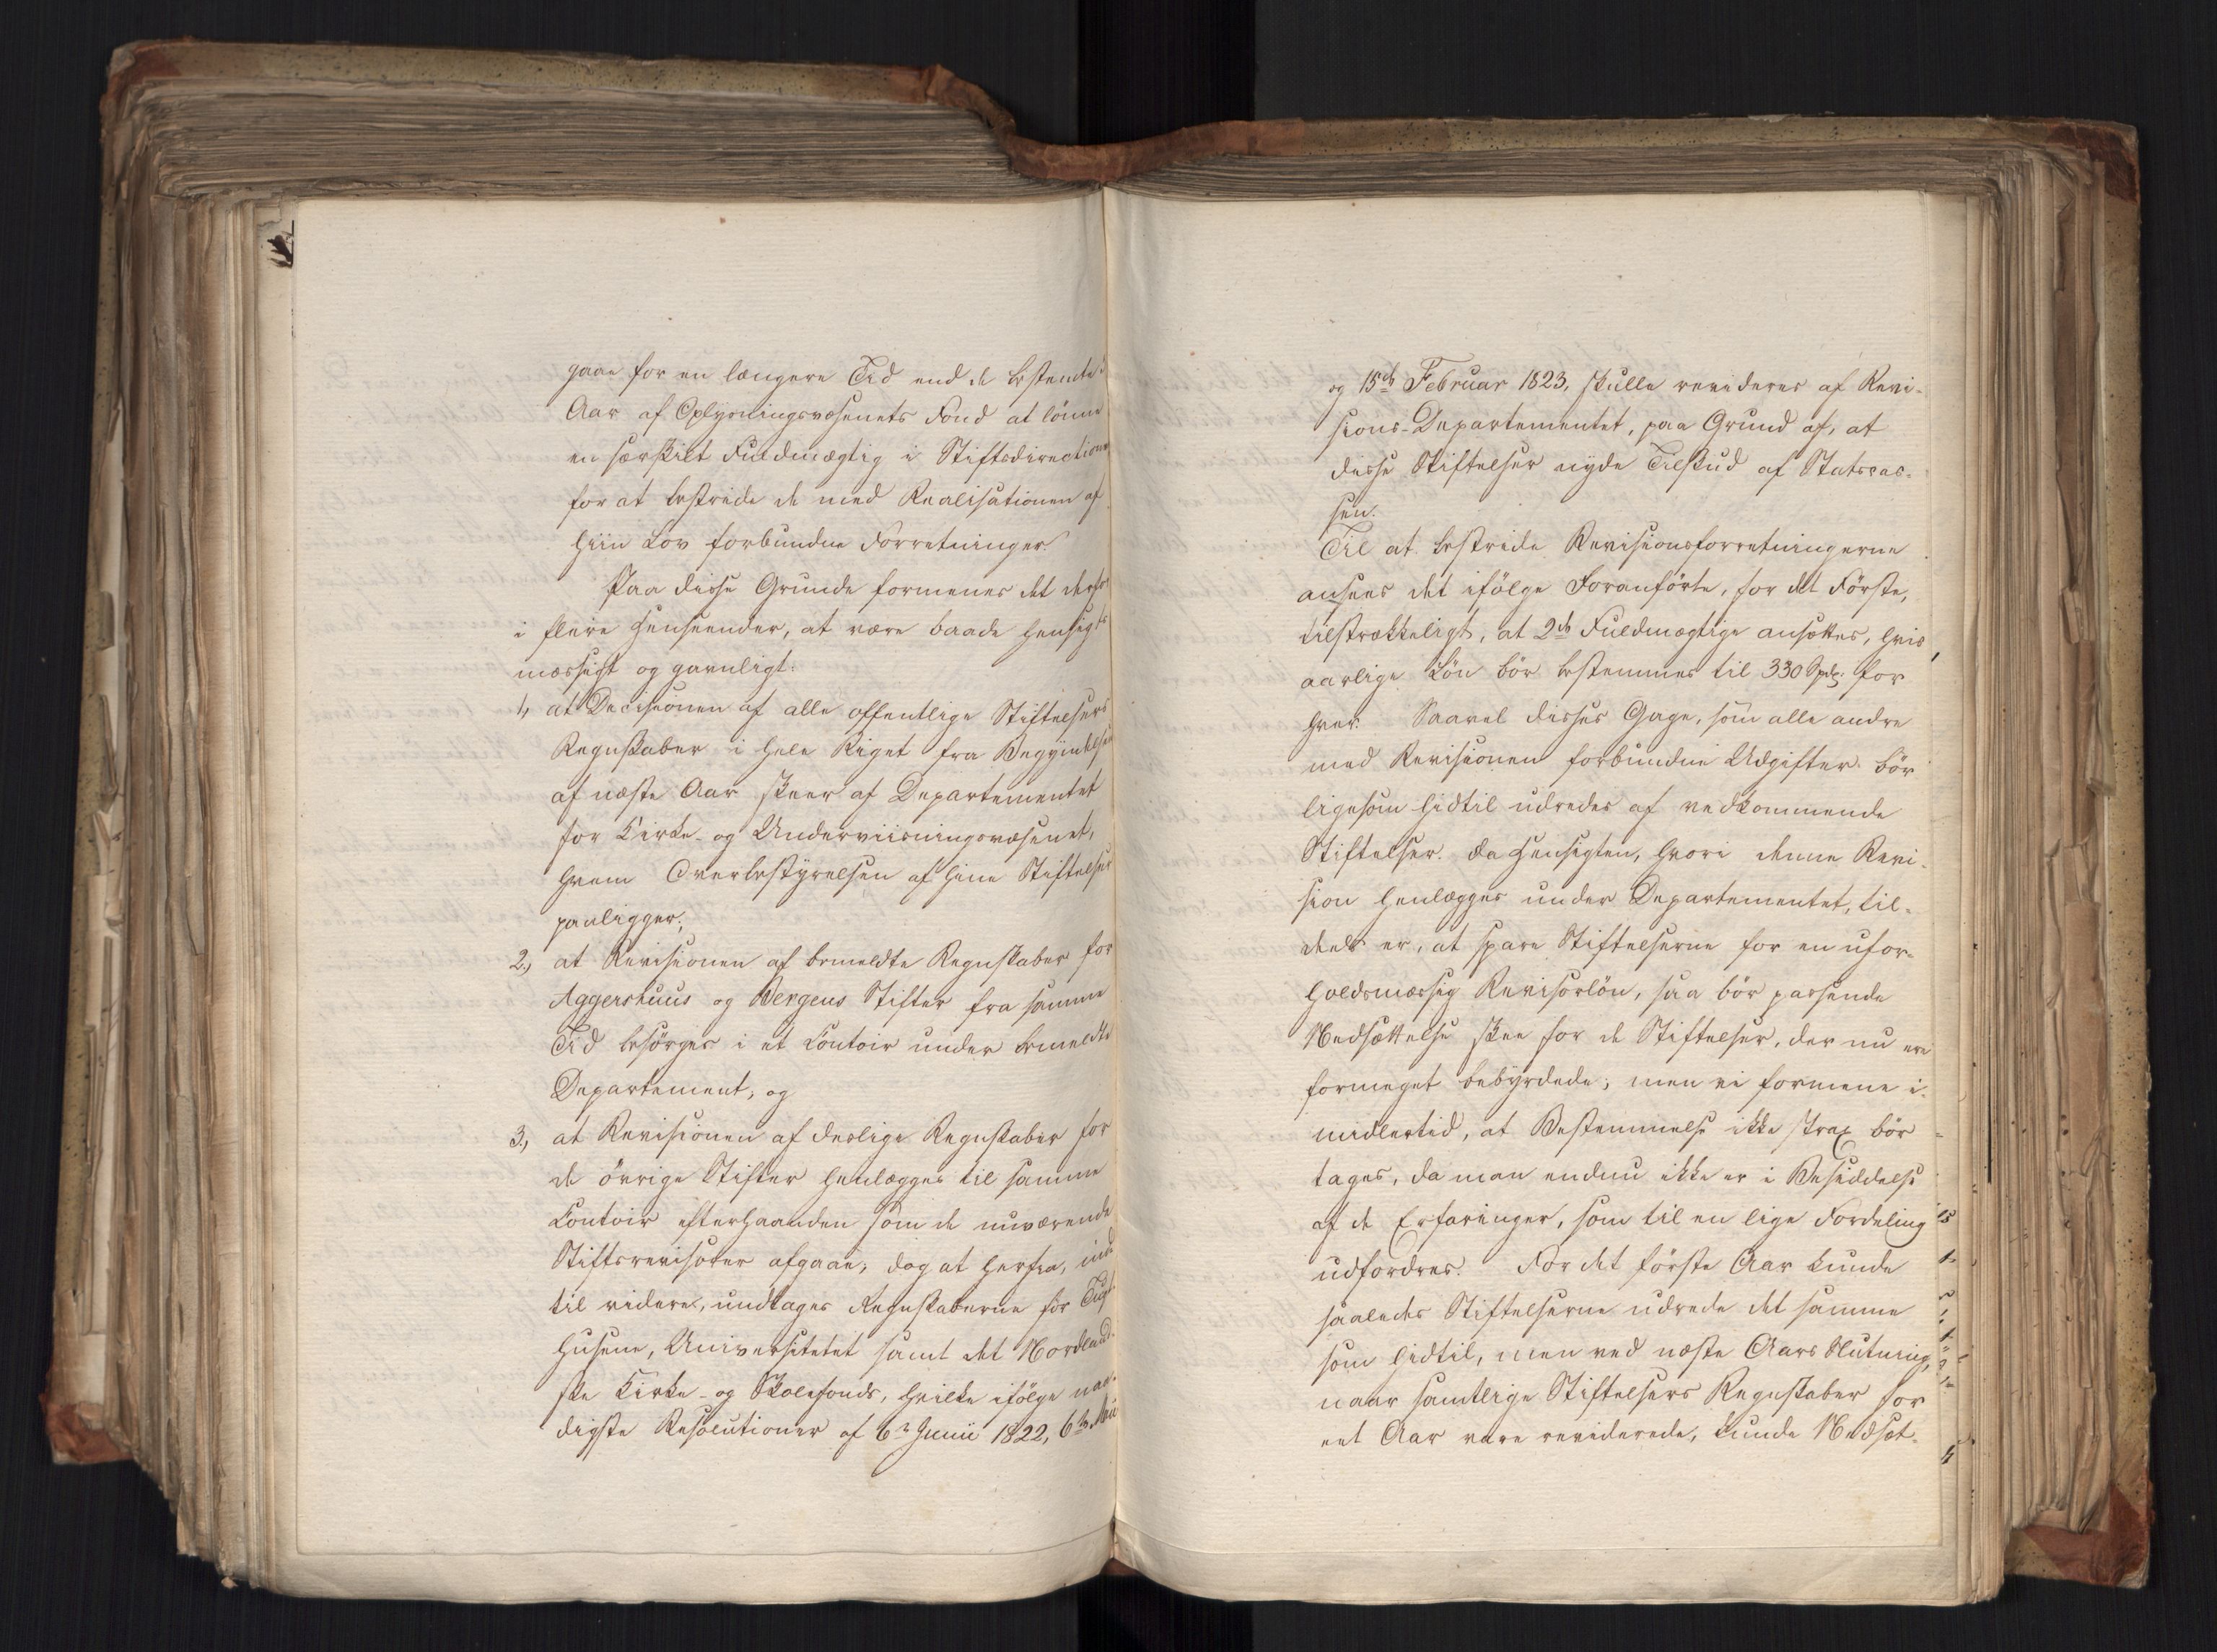 gaae for en længere Tid end de bestemte 3
Aar af Oplysningsvæsenets Fond at lönne
en særskilt Fuldmægtig i Stiftsdirectionen
for at bestride de med Realisationen af
hiin Lov forbundne Forretninger.
Paa disse Grunde formenes det derfor
i flere Henseender, at være baade hensigts
mæssigt og gavnligt:
1, at Decisionen af alle offentlige Stiftelsers
Regnskaber i hele Riget fra Begyndelsen
af næste Aar skeer af Departementet
for Kirke- og Underviisningsvæsenet,
hvem Overbestyrelsen af hine Stiftelser
paaligger;
2, at Revisionen af bemeldte Regnskaber for
Aggershuus og Bergens Stifter fra samme
Tid besörges i et Contoir under bemeldte
Departement, og
3, at Revisionen af deslige Regnskaber for
de övrige Stifter henlægges til samme
Contoir efterhaanden som de nuværende
Stiftsrevisorer afgaae; dog at herfra, ind
til videre, undtages Regnskaberne for Tugt
husene, Universitetet samt det Nordland-
ske Kirke- og Skolefonds, hvilke ifölge naa-
digste Resolutioner af 6te Junii 1822, 6te Mai
og 15de Februar 1823, skulle revideres af Revi-
sions-Departementet, paa Grund af, at
disse Stiftelser nyde Tilskud af Statscas-
sen.
Til at bestride Revisionsforretningerne
ansees det ifölge Foranförte, for det Förste,
tilstrækkeligt, at 2de Fuldmægtige ansættes, hvis
aarlige Lön bör bestemmes til 330 Spd. for
hver. Saavel disses Gage, som alle andre
med Revisionen forbundne Udgifter bör
ligesom hidtil udredes af vedkommende
Stiftelser. Da Hensigten, hvori denne Revi-
sion henlægges under Departementet, til-
deels er, at spare Stiftelserne for en ufor-
holdsmæssig Revisorlön, saa bör passende
Nedsættelse skee for de Stiftelser, der nu ere
formeget bebyrdede; men vi formene i-
midlertid, at Bestemmelse ikke strax bör
tages, da man endnu ikke er i Besiddelse
af de Erfaringer, som til en lige Fordeling
udfordres. For det förste Aar kunde
saaledes Stiftelserne udrede det samme
som hidtil, men ved næste Aars Slutning,
naar samtlige Stiftelsers Regnskaber for
eet Aar vare reviderede, kunde Nedsæt-